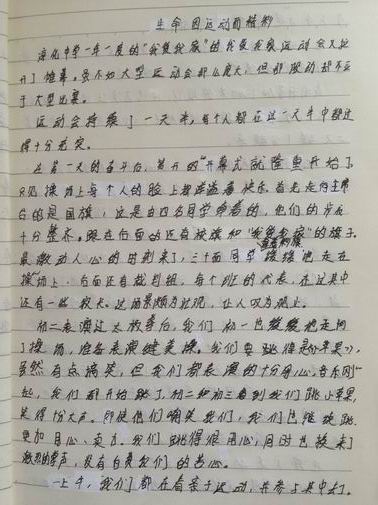 生命因运动而精彩
淳化中学一年一度的"我爱我家"的我爱我家运动会又拉
开了帷幕。虽不如大型运动会那么庞大,但那激动却不亚
于大型比赛。
运动会持续了一天半,每个人都在这一天半中都过
得十分充实。
在第一天的上午后,首开的"开幕式就隆重开始了
只见操场上每个人的脸上都洋溢着快乐,首先走向主席
台的是国旗,这是由四名同学举着的,他们的步伐
十分整齐。跟在后面的还有校旗和"我爱我家"的旗子。
最激动人心的时刻来了,三十面同学举着彩旗缓缓地走在
操场上,后面还有裁判组,每个班的代表,在这其中
还有一些校长。这场景颇为壮观,让人叹为观止。
初二表演过太极拳后,我们初一也缓缓地走向
了操场,准备表演健美操。我们要跳得是《小苹果》,
虽然有点搞笑,但我们都表演的十分用心,音乐刚一
起,我们都开始跳了,初二和初三看到我们跳小苹果,
笑得十分大声。即使他们嘲笑我们,我们也继续跳
更加用心、卖力。我们跳得很用心,同时也换来了
激烈的掌声,没有白费我们的苦心。
一上午,我们都在看亲子运动,并参与其中去了。